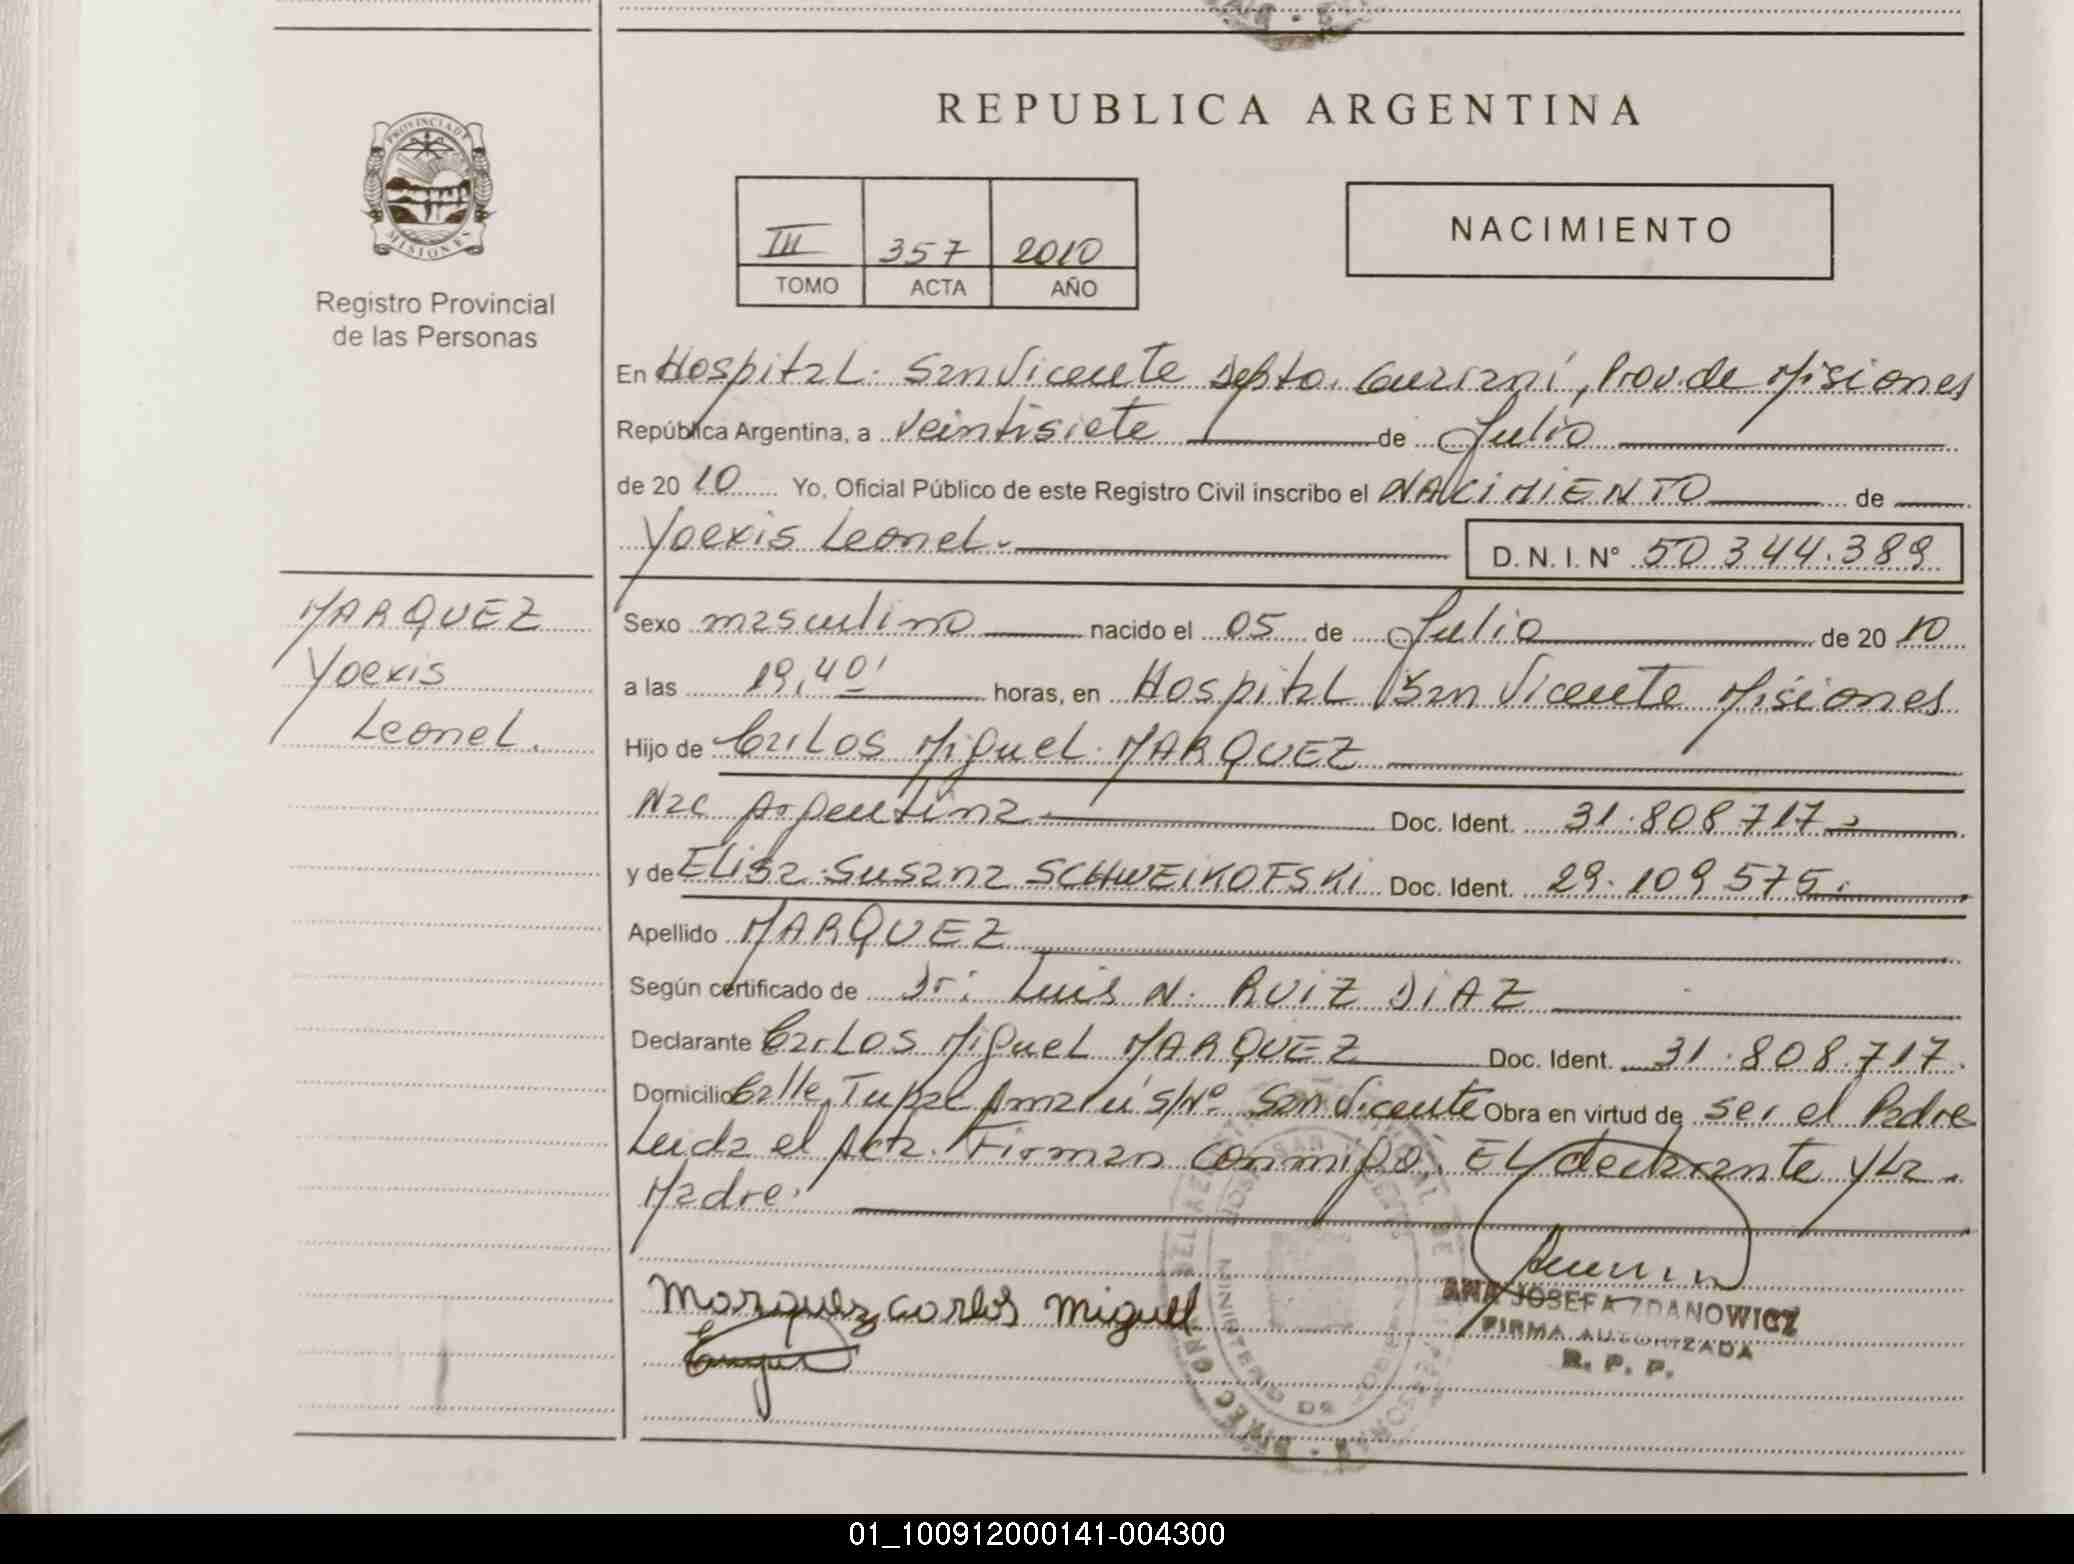 REPUBLICA ARGENTINA
PROVINCIA DE MISIONES
Registro Provincial
de las Personas
III 357 2010
TOMO ACTA AÑO
NACIMIENTO
En Hospital San Vicente Depto. Guaraní, Prov. de Misiones
República Argentina, a veintisiete de Julio
de 20 10 Yo, Oficial Público de este Registro Civil inscribo el NACIMIENTO de
Yoexis Leonel. D. N. I. N° 50344.389
MARQUEZ
Yoexis
Leonel.
Sexo masculino nacido el 05 de Julio de 20 10
a las 19,40' horas, en Hospital San Vicente Misiones
Hijo de Carlos Miguel MARQUEZ
Nac Argentina Doc. Ident. 31.808717
y de Elisa Susana SCHWEIKOFSKI Doc. Ident. 29.109575.
Apellido MARQUEZ
Según certificado de Dr: Luis N. RUIZ DIAZ
Declarante Carlos Miguel MARQUEZ Doc. Ident. 31.808.717.
Domicilio Calle Tupac Amarú s/Nº San Vicente Obra en virtud de ser el Padre
Leida el Acta. Firman conmigo. El declarante y La
Madre.
Marquez carlos miguel
ANA JOSEFA ZDANOWICZ
FIRMA AUTORIZADA
R. P. P.
01_100912000141-004300